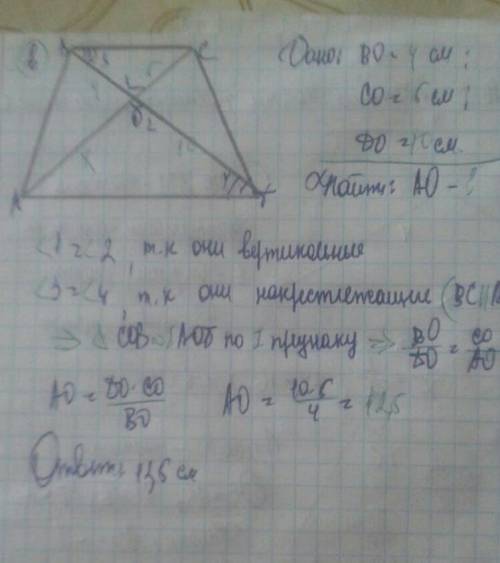 Дано: BO = 4 см;
CO = 5 см;
DO = 10 см.
Найти: AO - ?
<1 = <2, т.к они вертикальные
<3 = <4, т.к они накрестлежащие (BC ||
=> Δ COB ~ Δ AOD по I признаку => BO/DO = CO/AO
AO = DO · CO / BO AO = 10·5/4 = 12,5
Ответ: 12,5 см